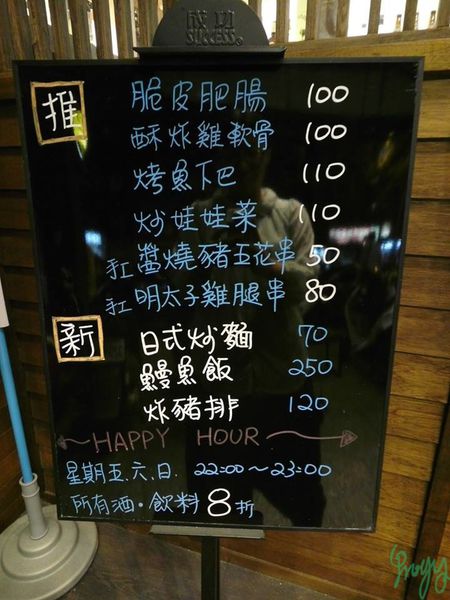 成功
SUCCESS
推
脆皮肥腸 100
酥炸雞軟骨 100
烤魚下巴 110
炒娃娃菜 110
手工醬燒豬五花串 50
手工明太子雞腿串 80
新
日式炒麵 70
鰻魚飯 250
炸豬排 120
HAPPY HOUR
星期五.六.日. 22:00~23:00
所有酒.飲料 8折